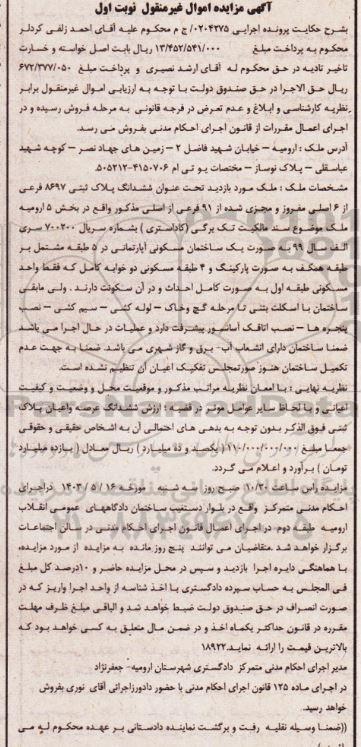 آگهی مزایده اموال غیرمنقول نوبت اول
بشرح حکایت پرونده اجرایی ۰۲۰۴۳۷۵/ج م محکوم علیه آقای احمد زلفی کردلر
محکوم به پرداخت مبلغ ۱۳/۴۵۲/۵۴۱/۰۰۰ ریال بابت اصل خواسته و خسارت
تاخیر تادیه در حق محکوم له آقای ارشد نصیری و پرداخت مبلغ ۶۷۲/۳۷۷/۰۵۰
ریال حق الاجرا در حق صندوق دولت با توجه به ارزیابی اموال غیرمنقول برابر
نظریه کارشناسی و ابلاغ و عدم تعرض در فرجه قانونی به مرحله فروش رسیده و در
اجرای اعمال مقررات از قانون اجرای احکام مدنی بفروش می رسد.
آدرس ملک : ارومیه – خیابان شهید فاضل ۲ – زمین های جهاد نصر – کوچه شهید
عباسقلی – پلاک نوساز – مختصات یو تی ام ۴۱۵۰۷۰۶-۵۰۵۲۱۲.
مشخصات ملک : ملک مورد بازدید تحت عنوان ششدانگ پلاک ثبتی ۸۶۹۷ فرعی
از ۶ اصلی مفروز و مجزی شده از ۹۱ فرعی از اصلی مذکور واقع در بخش ۵ ارومیه
ملک موضوع سند مالکیت تک برگی (کاداستری) بشماره سریال ۷۰۰۲۰۰ سری
الف سال ۹۹ به صورت یک ساختمان مسکونی آپارتمانی در ۵ طبقه مشتمل بر
طبقه همکف به صورت پارکینگ و ۴ طبقه مسکونی دو خوابه کامل که فقط واحد
مسکونی طبقه اول به صورت کامل احداث و در آن سکونت دارند . ولی مابقی
ساختمان با اسکلت بتنی تا مرحله گچ وخاک – لوله کشی – سیم کشی – نصب
پنجره ها – نصب اتاقک آسانسور پیشرفت دارد و عملیات در حال اجرا می باشد
ضمنا ساختمان دارای انشعاب آب- برق و گاز شهری می باشد. ضمنا به جهت عدم
تکمیل ساختمان هنوز صورتمجلس تفکیک اعیان آن تنظیم نشده است.
نظریه نهایی : با امعان نظریه مراتب مذکور و موقعیت محل و وضعیت و کیفیت
اعیانی و با لحاظ سایر عوامل موثر در قضیه : ارزش ششدانگ عرصه واعیان پلاک
ثبتی فوق الذکر بدون توجه به بدهی های احتمالی آن به اشخاص حقیقی و حقوقی
جمعا مبلغ ۱۱۰/۰۰۰/۰۰۰/۰۰۰ ( یکصد و ده میلیارد ) ریال معادل ( یازده میلیارد
تومان ) برآورد و اعلام می گردد.
مزایده راس ساعت ۱۰/۳۰ صبح روز سه شنبه مورخه ۱۶ / ۵ / ۱۴۰۳ دراجرای
احکام مدنی متمرکز واقع در بلوار دستغیب ساختمان دادگاههای عمومی انقلاب
ارومیه طبقه دوم در اجرای اعمال قانون اجرای احکام مدنی در سالن اجتماعات
برگزار خواهد شد .متقاضیان می توانند پنج روز مانده به مزایده از مورد مزایده،
با هماهنگی دایره اجرا بازدید و سپس در محل مزایده حاضر و ۱۰درصد کل مبلغ
فی المجلس به حساب سپرده دادگستری با اخذ شناسه از واحد اجرا واریز که در
صورت انصراف در حق صندوق دولت ضبط خواهد شد و الباقی مبلغ ظرف مهلت
مقرره در قانون حداکثر یکماه اخذ و در ضمن مال متعلق به کسی خواهد بود که
بالاترین قیمت را ارائه نماید.۱۸۹۲۲
مدیر اجرای احکام مدنی متمرکز دادگستری شهرستان ارومیه- جعفرنژاد
در اجرای ماده ۱۲۵ قانون اجرای احکام مدنی با حضور دادورزاجرانی آقای نوری بفروش
خواهد رسید.
((ضمنا وسیله نقلیه رفت و برگشت نماینده دادستانی بر عهده محکوم له می